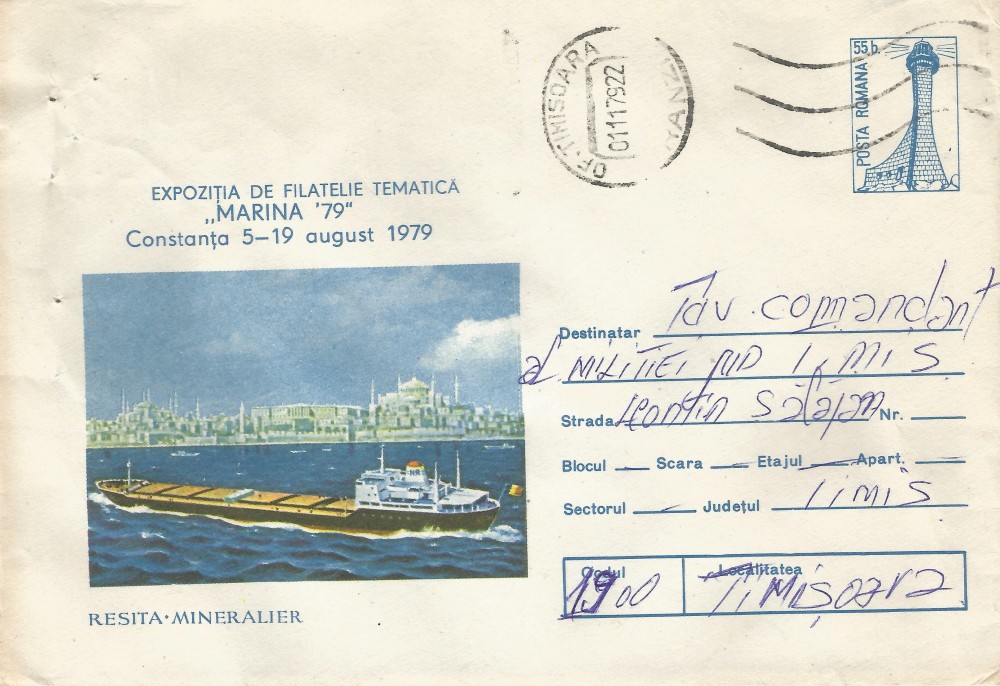 55 b.
POSTA ROMANA
OF. TIMISOARA
01 11 79 22
EXPOZIȚIA DE FILATELIE TEMATICĂ
„MARINA '79"
Constanța 5–19 august 1979
NR
RESITA·MINERALIER
Destinatar Tov comandant
al MILITIEI JUD TIMIS
Strada Leontin Sălăjan Nr.
Blocul Scara Etajul Apart.
Sectorul Județul TIMIS
Codul Localitatea
1900 TIMIȘOARA